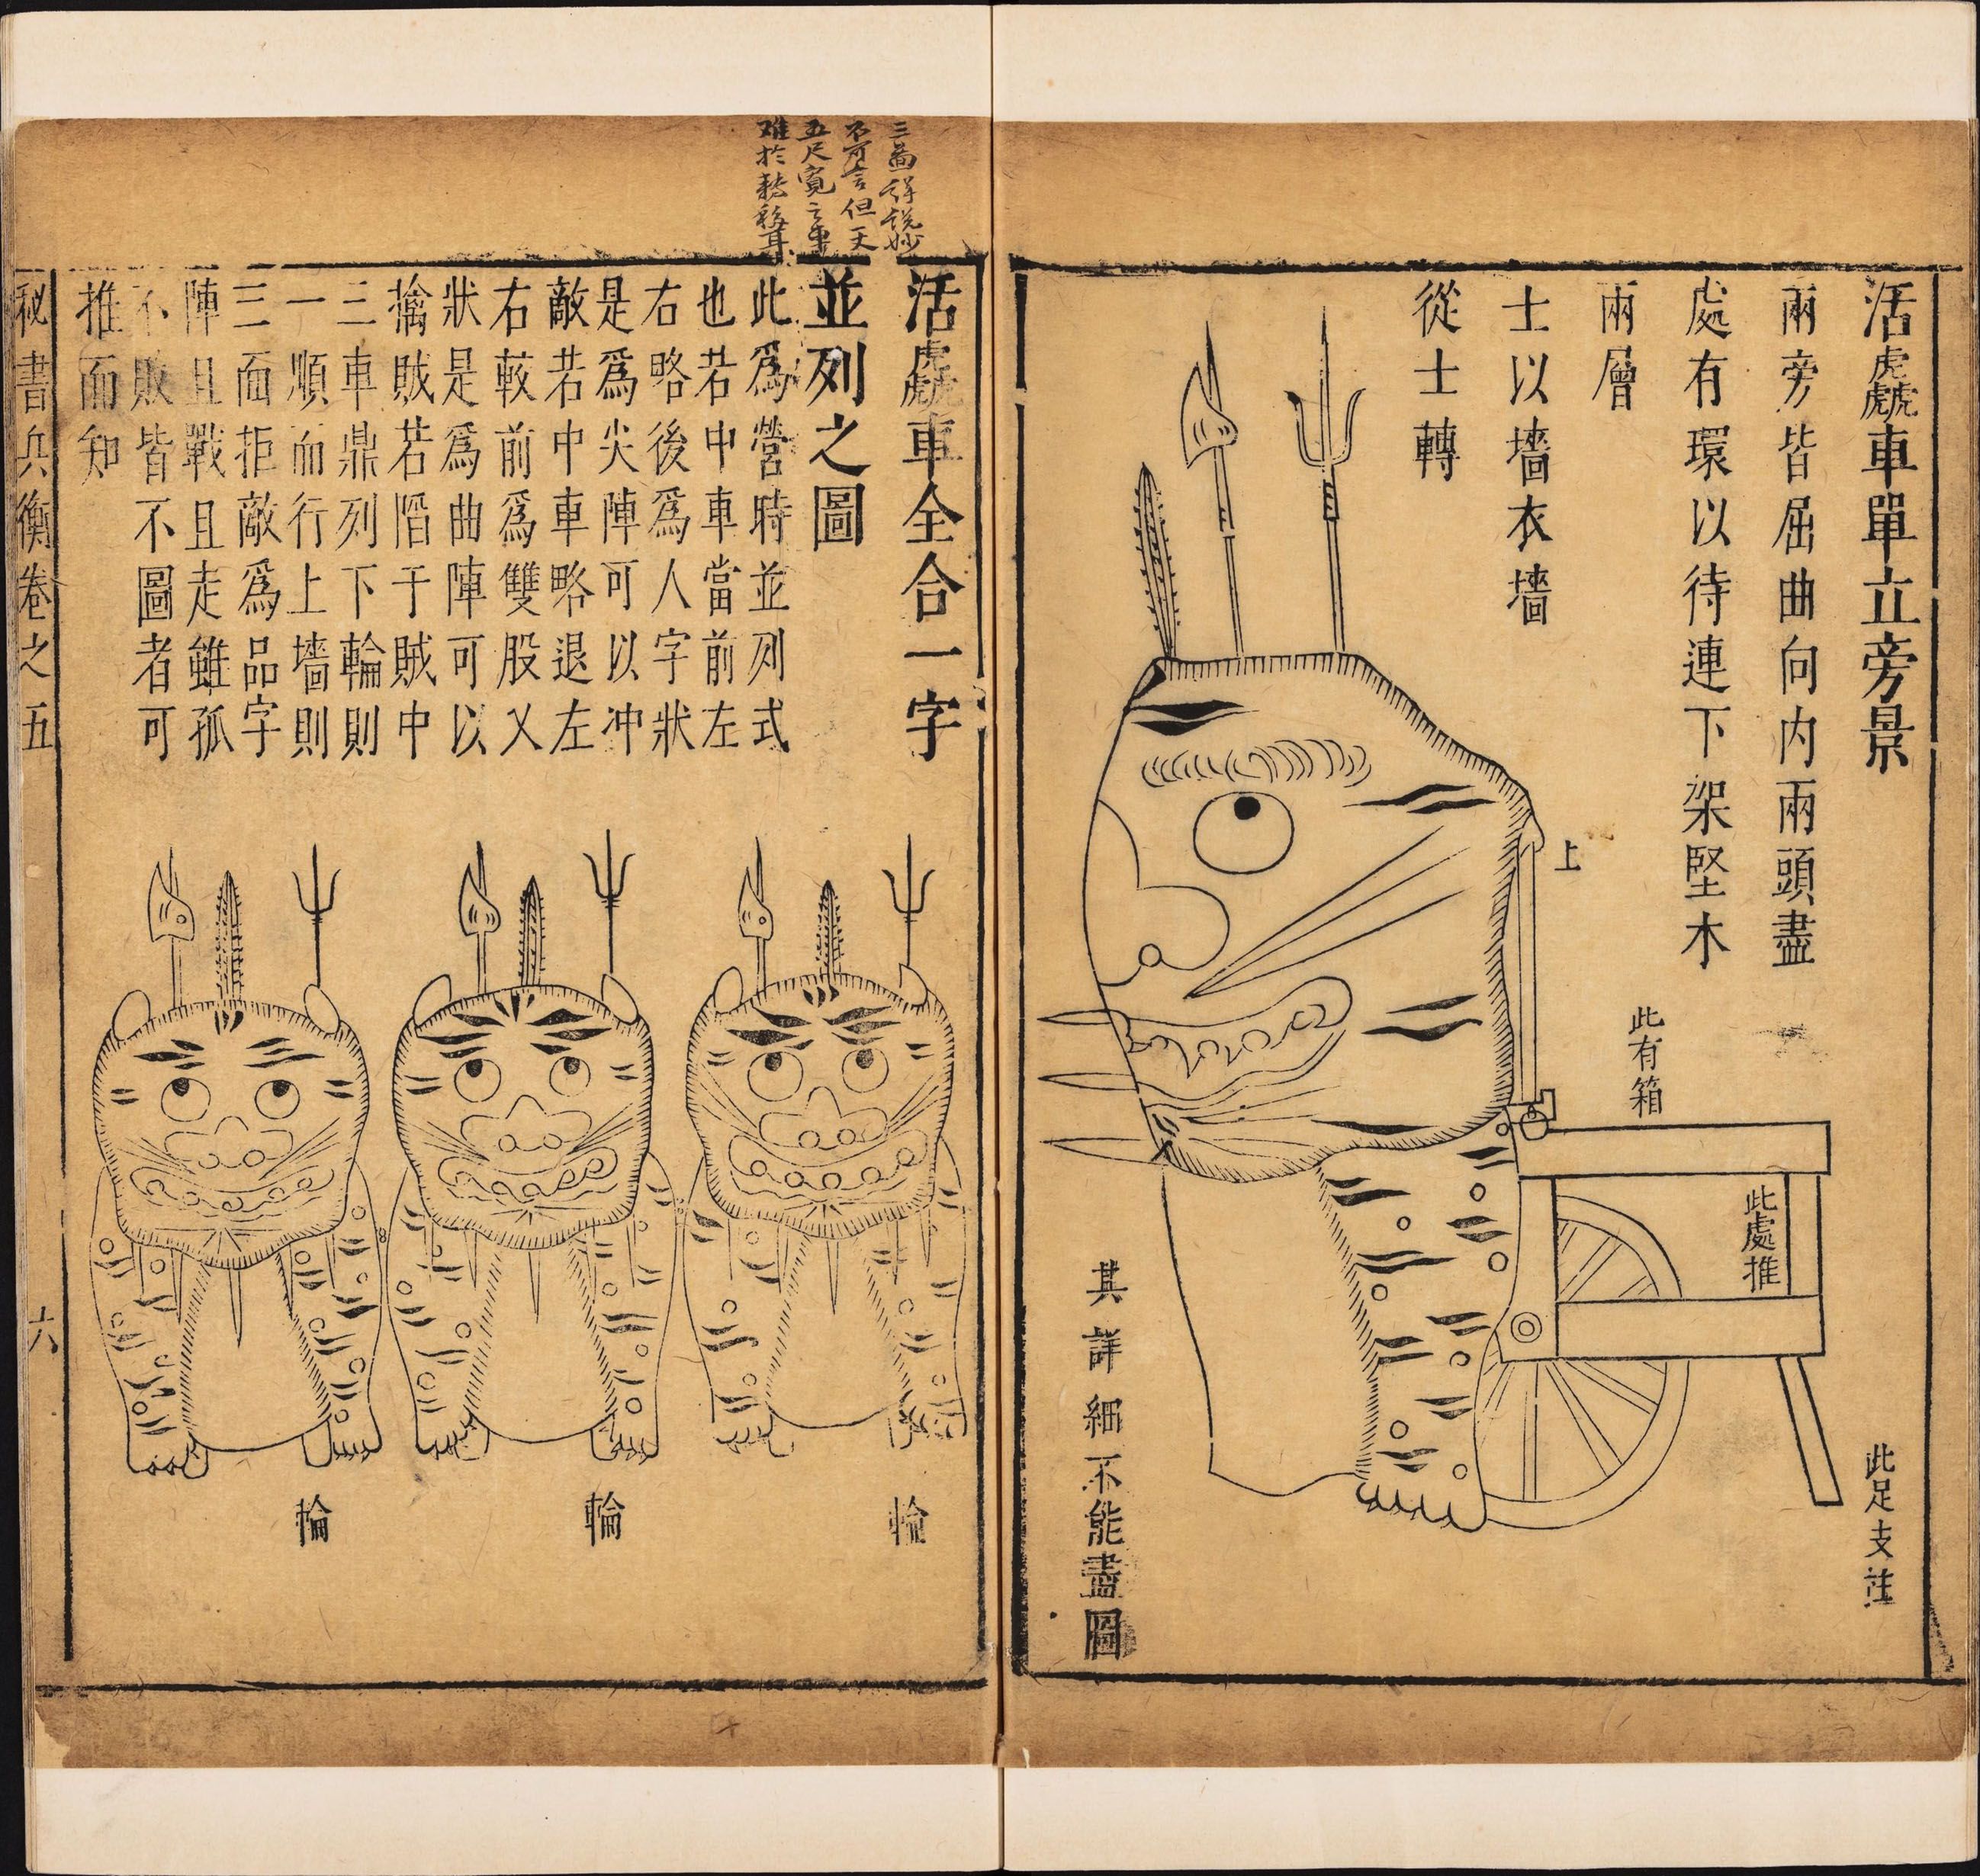 活⿱虎虤車單立旁景
兩旁皆屈曲向内兩頭盡
處有環以待連下架堅木
兩層
士以墻衣墻
從士轉
上
此有箱
此處推
此足支注
其詳細不能盡圖
三圖得説妙
不可言但天
五尺寬之車
難於轉移耳
活⿱虎虤車全合一字
並列之圖
此爲營時並列式
也若中車當前左
右略後爲人字狀
是爲尖陣可以冲
敵若中車略退左
右較前爲雙股乂
狀是爲曲陣可以
擒賊若陷于賊中
三車鼎列下輪則
一順而行上墻則
三面拒敵爲品字
陣且戰且走雖孤
不敗皆不圖者可
推而知
輪
輪
輪
秘書兵衡卷之五
六